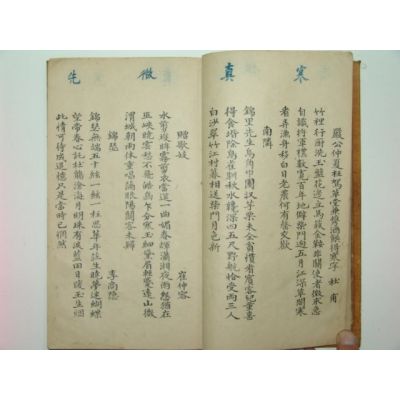 寒
真
嚴公仲夏枉駕草堂兼携酒饌得寒字 杜甫
竹裡行厨洗玉盤花邊立馬簇金鞍非關使者徵求急
自識將軍禮數寬百年地僻柴門逈五月江深草閣寒
看弄漁舟移白日老農何有罄交歡
南隣
錦里先生烏角巾園收芋栗未全貧慣看賓客兒童喜
得食堦除鳥雀馴秋水纔深四五尺野航恰受兩三人
白沙翠竹江村暮相送柴門月色新
微
先
贈歌妓 崔仲容
水剪雙眸霧剪衣當筵一曲媚春輝瀟湘夜雨怨猶在
巫峽曉雲愁不稀皓齒乍分寒玉細黛眉輕蹙遠山微
渭城朝雨休重唱滿眼陽關客未歸
錦瑟 李商隱
錦瑟無端五十絃一絃一柱思華年莊生曉夢迷蝴蝶
望帝春心託杜鵑滄海月明珠有淚藍田日暖玉生烟
此情可待成追憶只是當時已惘然